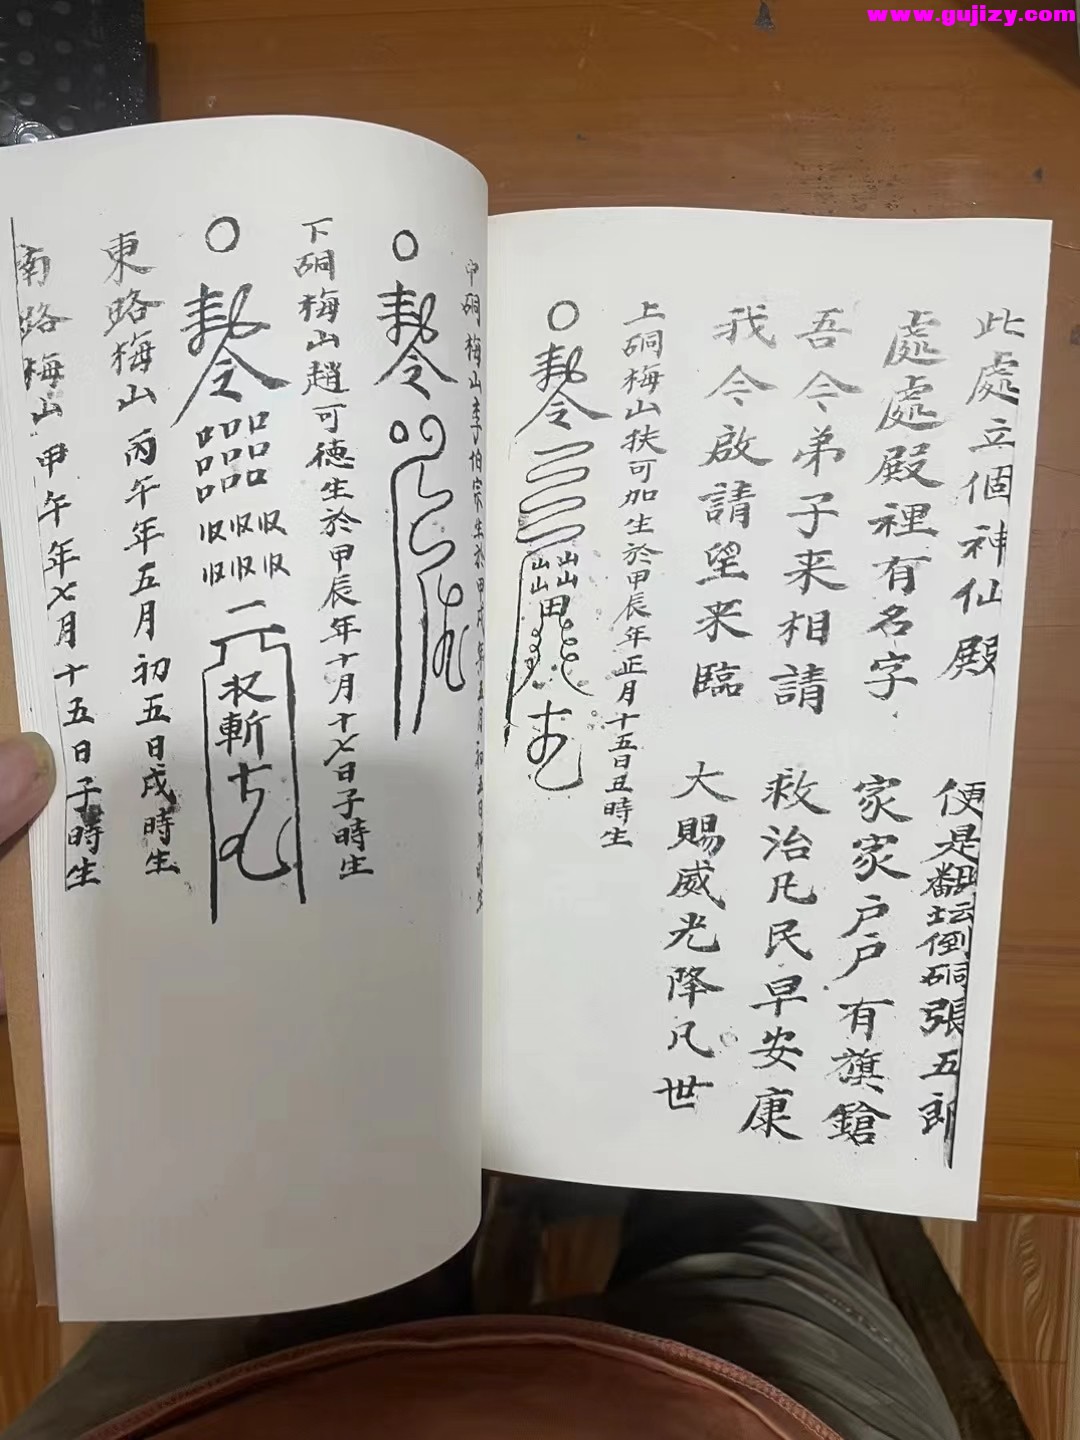 www.gujizy.com
此處立個神仙殿 便是翻坛倒硐張五郎
處處殿裡有名字 家家户户有旗鎗
吾今弟子来相請 救治凡民早安康
我今啟請望来臨 大賜威光降凡世
上硐梅山扶可加生於甲辰年正月十五日丑時生
○
令
山山山山
中硐梅山李伯宗生於甲戌年五月初五日時生
○
令
下硐梅山趙可德生於甲辰年十月十七日子時生
○
令
口口口口口口口口口
収収収収収収
収斬
東路梅山丙午年五月初五日戌時生
南路梅山甲午年七月十五日子時生